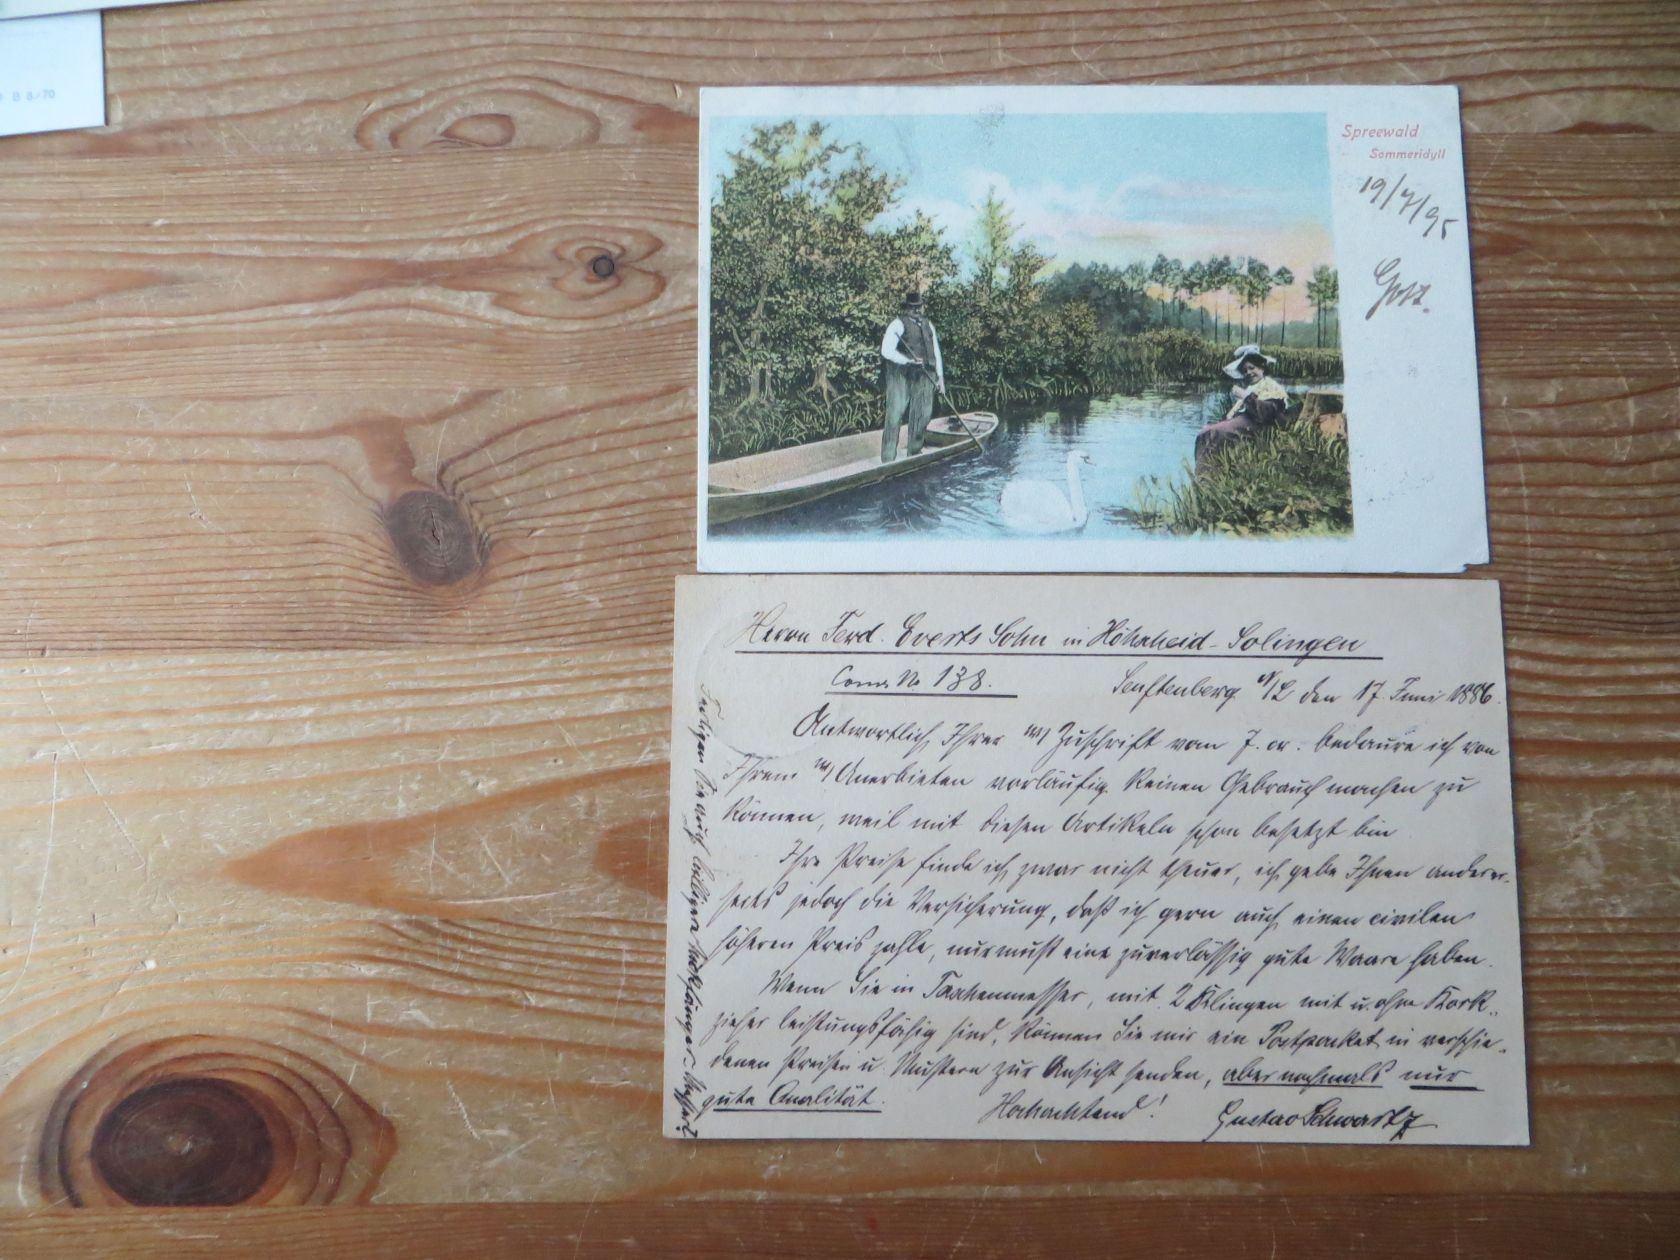 B 8/70
Spreewald
Sommeridyll
19/7/95
Herrn Ferd. Everts Sohn in Höhscheid-Solingen
No 138.
Senftenberg N/L den 17. Juni 1886.
Antwortlich Ihrer Zuschrift vom 7. cr. bedaure ich von
Ihrem Anerbieten vorläufig keinen Gebrauch machen zu
können, weil mit diesen Artikeln schon besetzt bin
Ihre Preise finde ich zwar nicht theuer, ich gebe Ihnen anderer-
seits jedoch die Versicherung, daß ich gern auch einen civilen
höheren Preis zahle, nur muß eine zuverlässig gute Waare haben.
Wenn Sie in Taschenmesser, mit 2 Klingen mit u. ohne Kork-
zieher leistungsfähig sind, können Sie mir ein Postpacket in verschie-
denen Preisen u. Mustern zur Ansicht senden, aber nochmals nur
gute Qualität.
Hochachtend!
Gustav Schwartz
Fertigen Sie auch billigere Nickfänger-Messer?